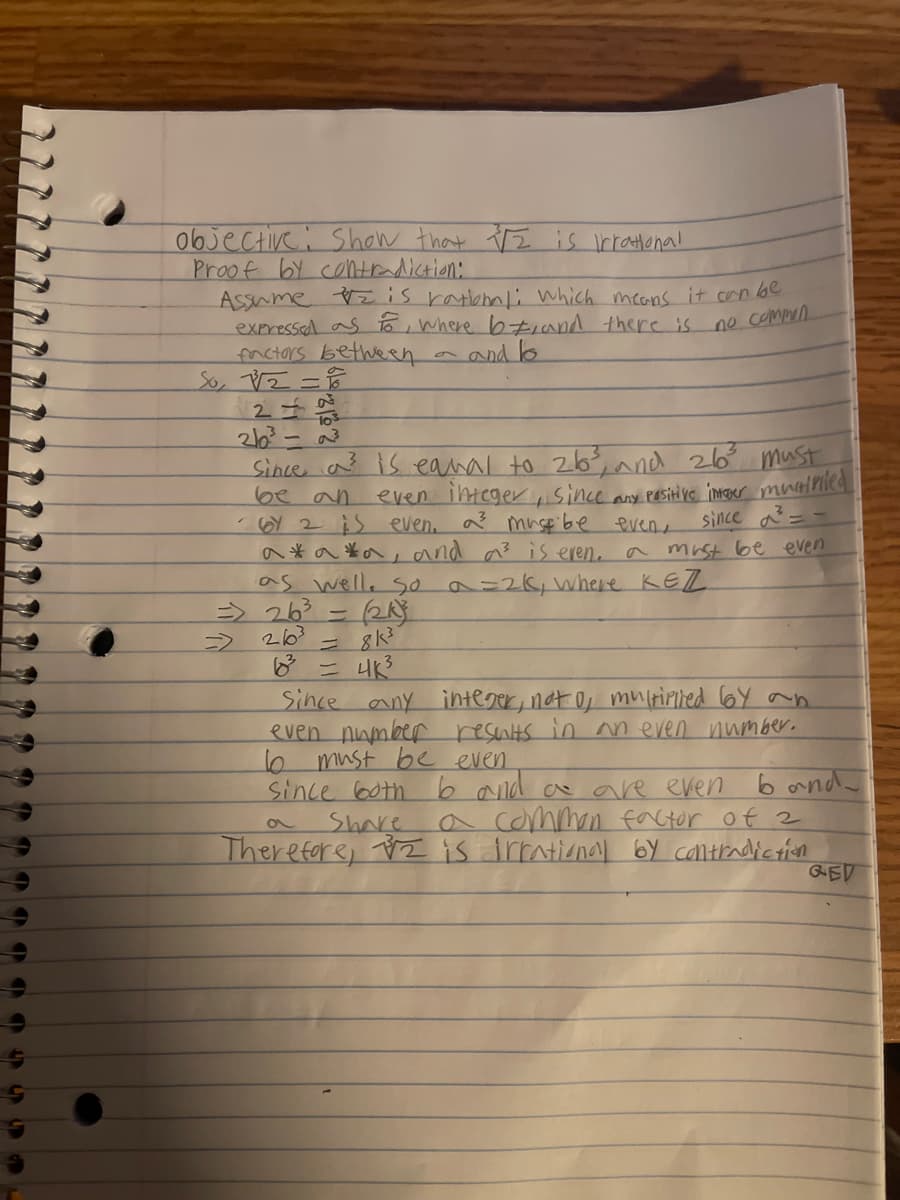 Objective: Show that ∛2 is irrational
Proof by contradiction:
Assume ∛2 is rational; which means it can be
expressed as a/b, where b≠, and there is no common
factors between a and b
So, ∛2 = a/b
2 = a³/b³
2b³ = a³
Since a³ is equal to 2b³, and 2b³ must
be an even integer, since any positive integer multiplied
by 2 is even. a³ must be even, since a³ = -
a*a*a, and a³ is even. a must be even
as well. So a=2k, where k∈ℤ
=> 2b³ = (2k)³
=> 2b³ = 8k³
b³ = 4k³
Since any integer, not 0, multiplied by an
even number results in an even number.
b must be even
Since both b and a are even b and
a share a common factor of 2
Therefore, ∛2 is irrational by contradiction
QED